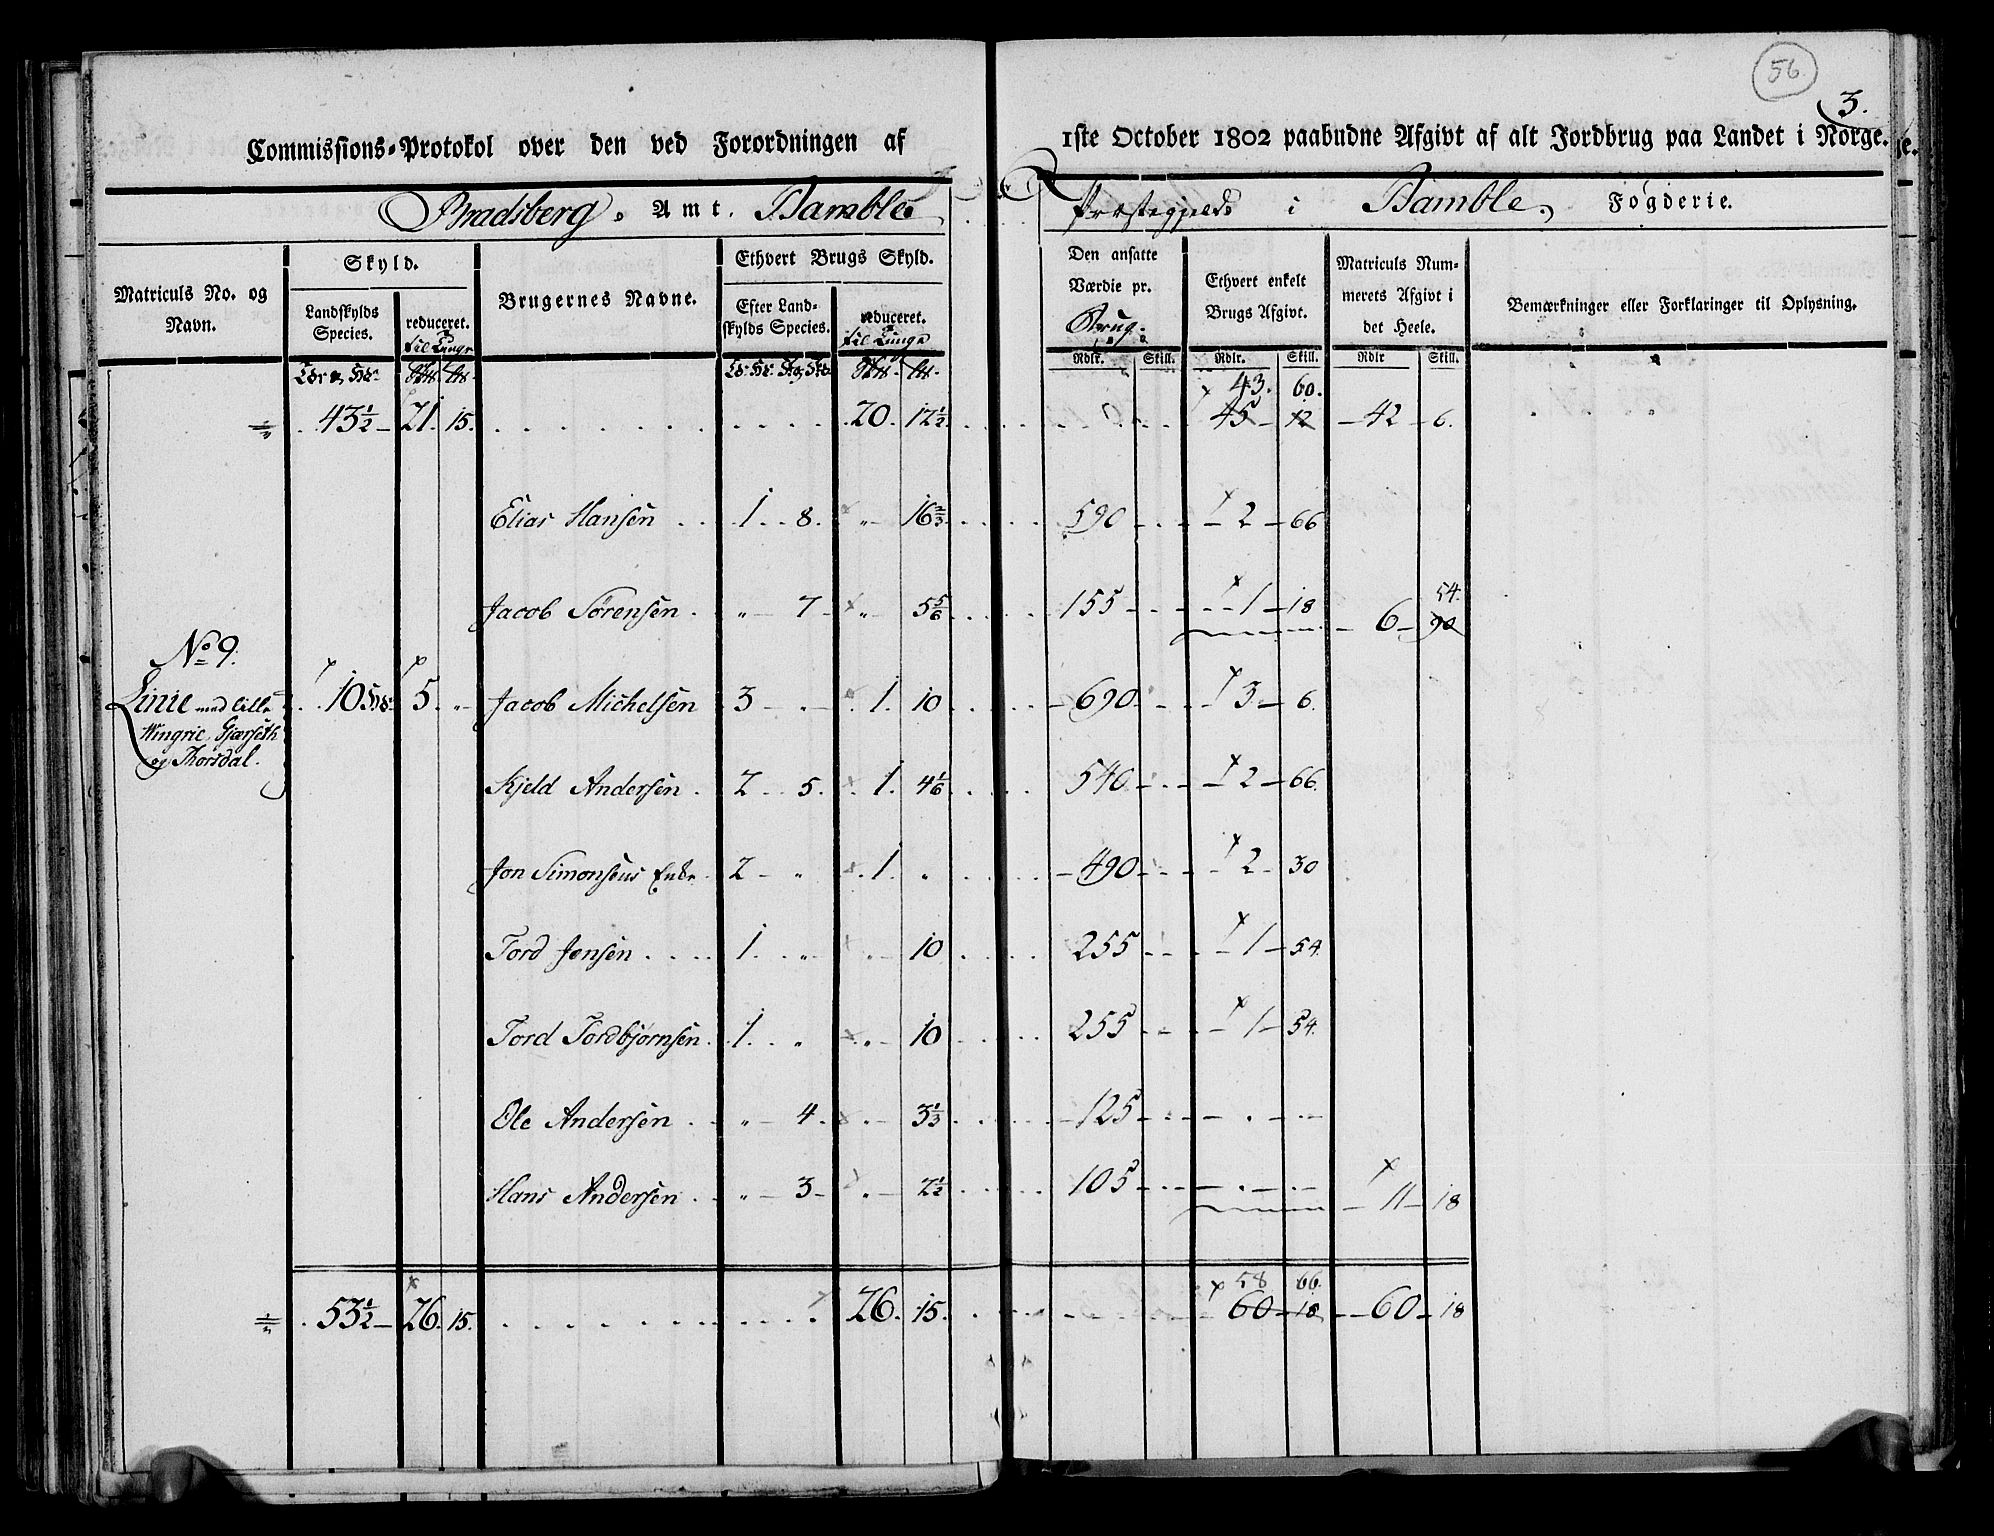 56
3.
Commissions-Protokol over den ved Forordningen af 1ste October 1802 paabudne Afgivt af alt Jordbrug paa Landet i Norge.
Bradsberg Amt. Bamble Præstegjeld i Bamble Fögderie.
Matriculs No. og Navn.
Skyld.
Landskylds Species.
reduceret. til Tunge
Brugernes Navne.
Ethvert Brugs Skyld.
Efter Landskylds Species.
reduceret. til Tunge
Den ansatte Værdie pr. Brug.
Ethvert enkelt Brugs Afgivt.
Matriculs Nummerets Afgivt i det Heele.
Bemærkninger eller Forklaringer til Oplysning.
Rdlr. Skill. Rdlr. Skill. Rdlr Skill.
43. 60.
43½ 21. 15. 20. 12½ 45 12 42 6.
Elias Hansen 1 8. 16⅔ 590 2 66
Jacob Sörensen 7 5⅚ 155 1 18
54.
6 90
No 9.
Linie med lille Wingrie, Gjærseth og Thorsdal.
10 5 Jacob Michelsen 3 1. 10 690 3 6.
Kjeld Andersen 2 5. 1. 4⅙ 540 2 66
Jon Simonsens Enke 2 1 490 2 30
Tord Jensen 1 10 255 1 54
Tord Tordbjørnsen 1. 10 255 1 54.
Ole Andersen 4. 3⅓ 125
Hans Andersen 3 2½ 105
11 18
58 66.
53½ 26. 15. 26. 15. 60 18 60 18